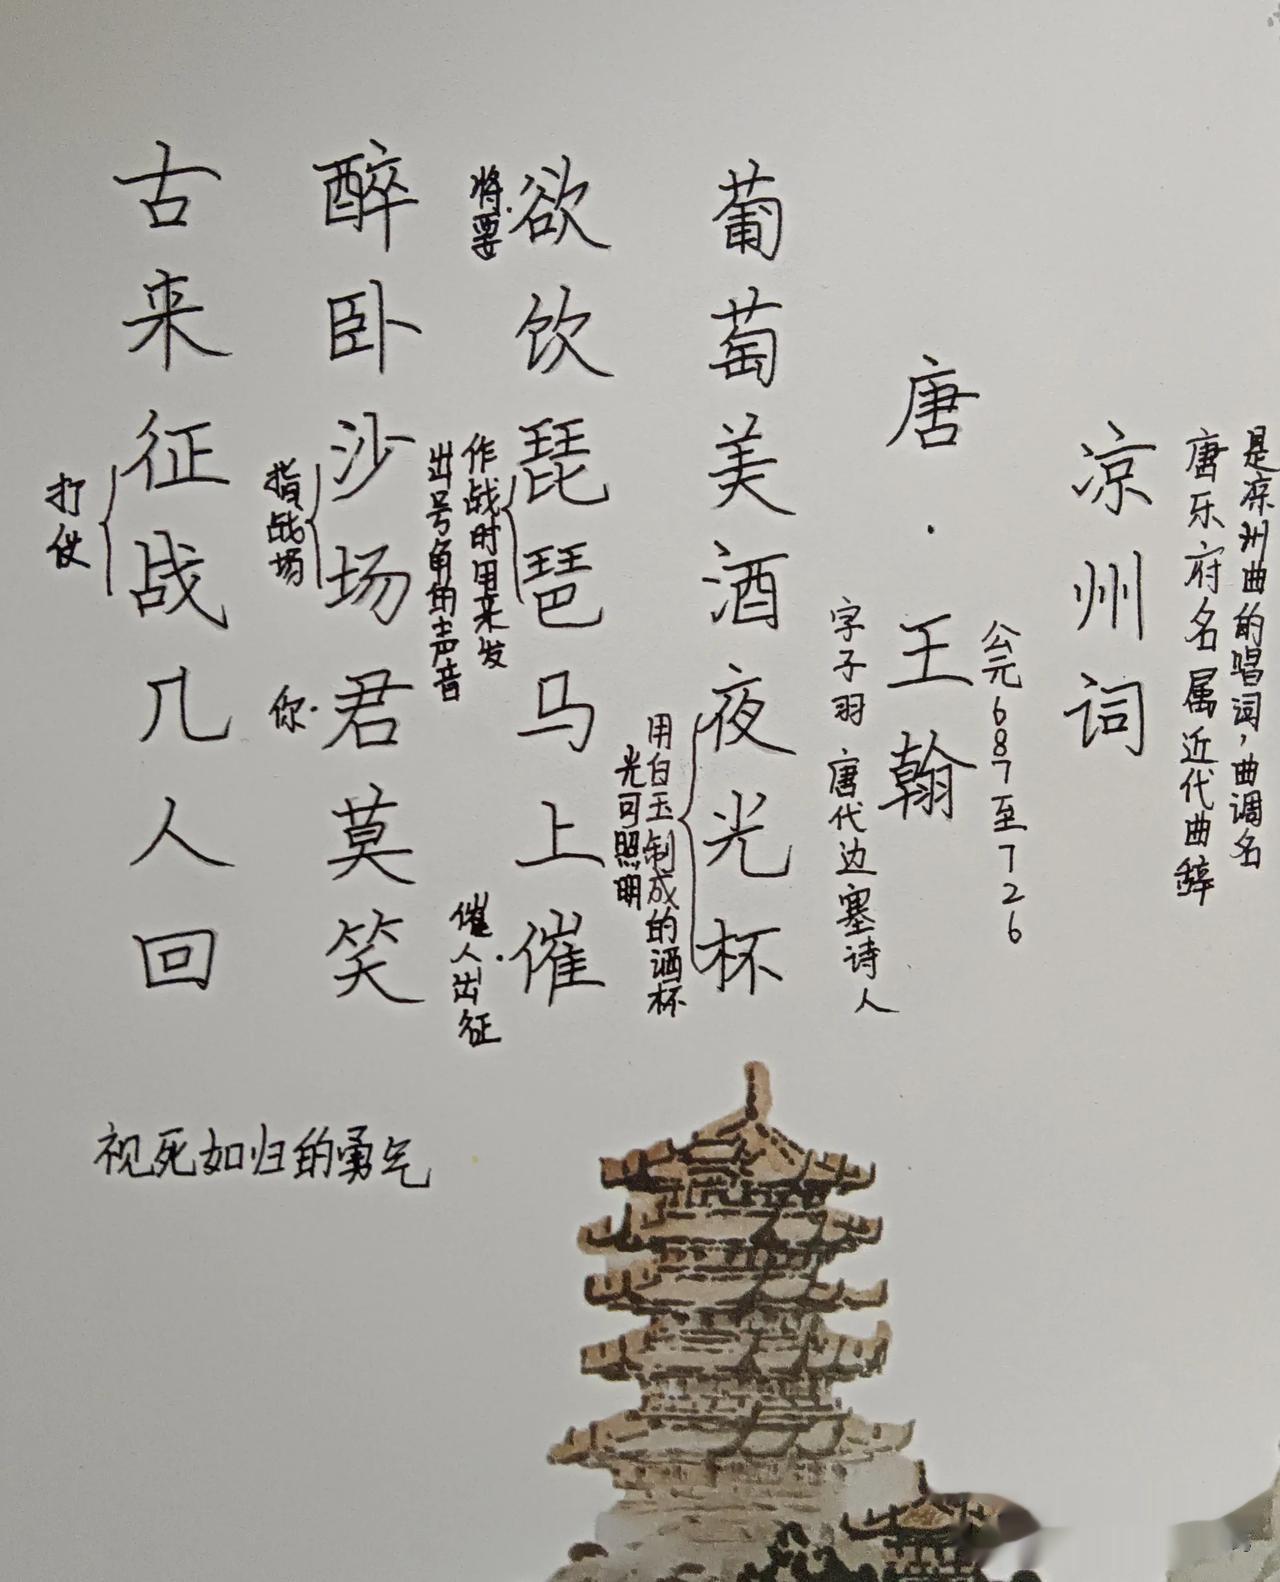 是凉州曲的唱词，曲调名
唐乐府名属近代曲辞
凉州词
公元687至726
唐·王翰
字子羽 唐代边塞诗人
葡萄美酒夜光杯
用白玉制成的酒杯
光可照明
欲饮琵琶马上催
将要
作战时用来发
出号角的声音
催人出征
醉卧沙场君莫笑
指战场
你
古来征战几人回
打仗
视死如归的勇气